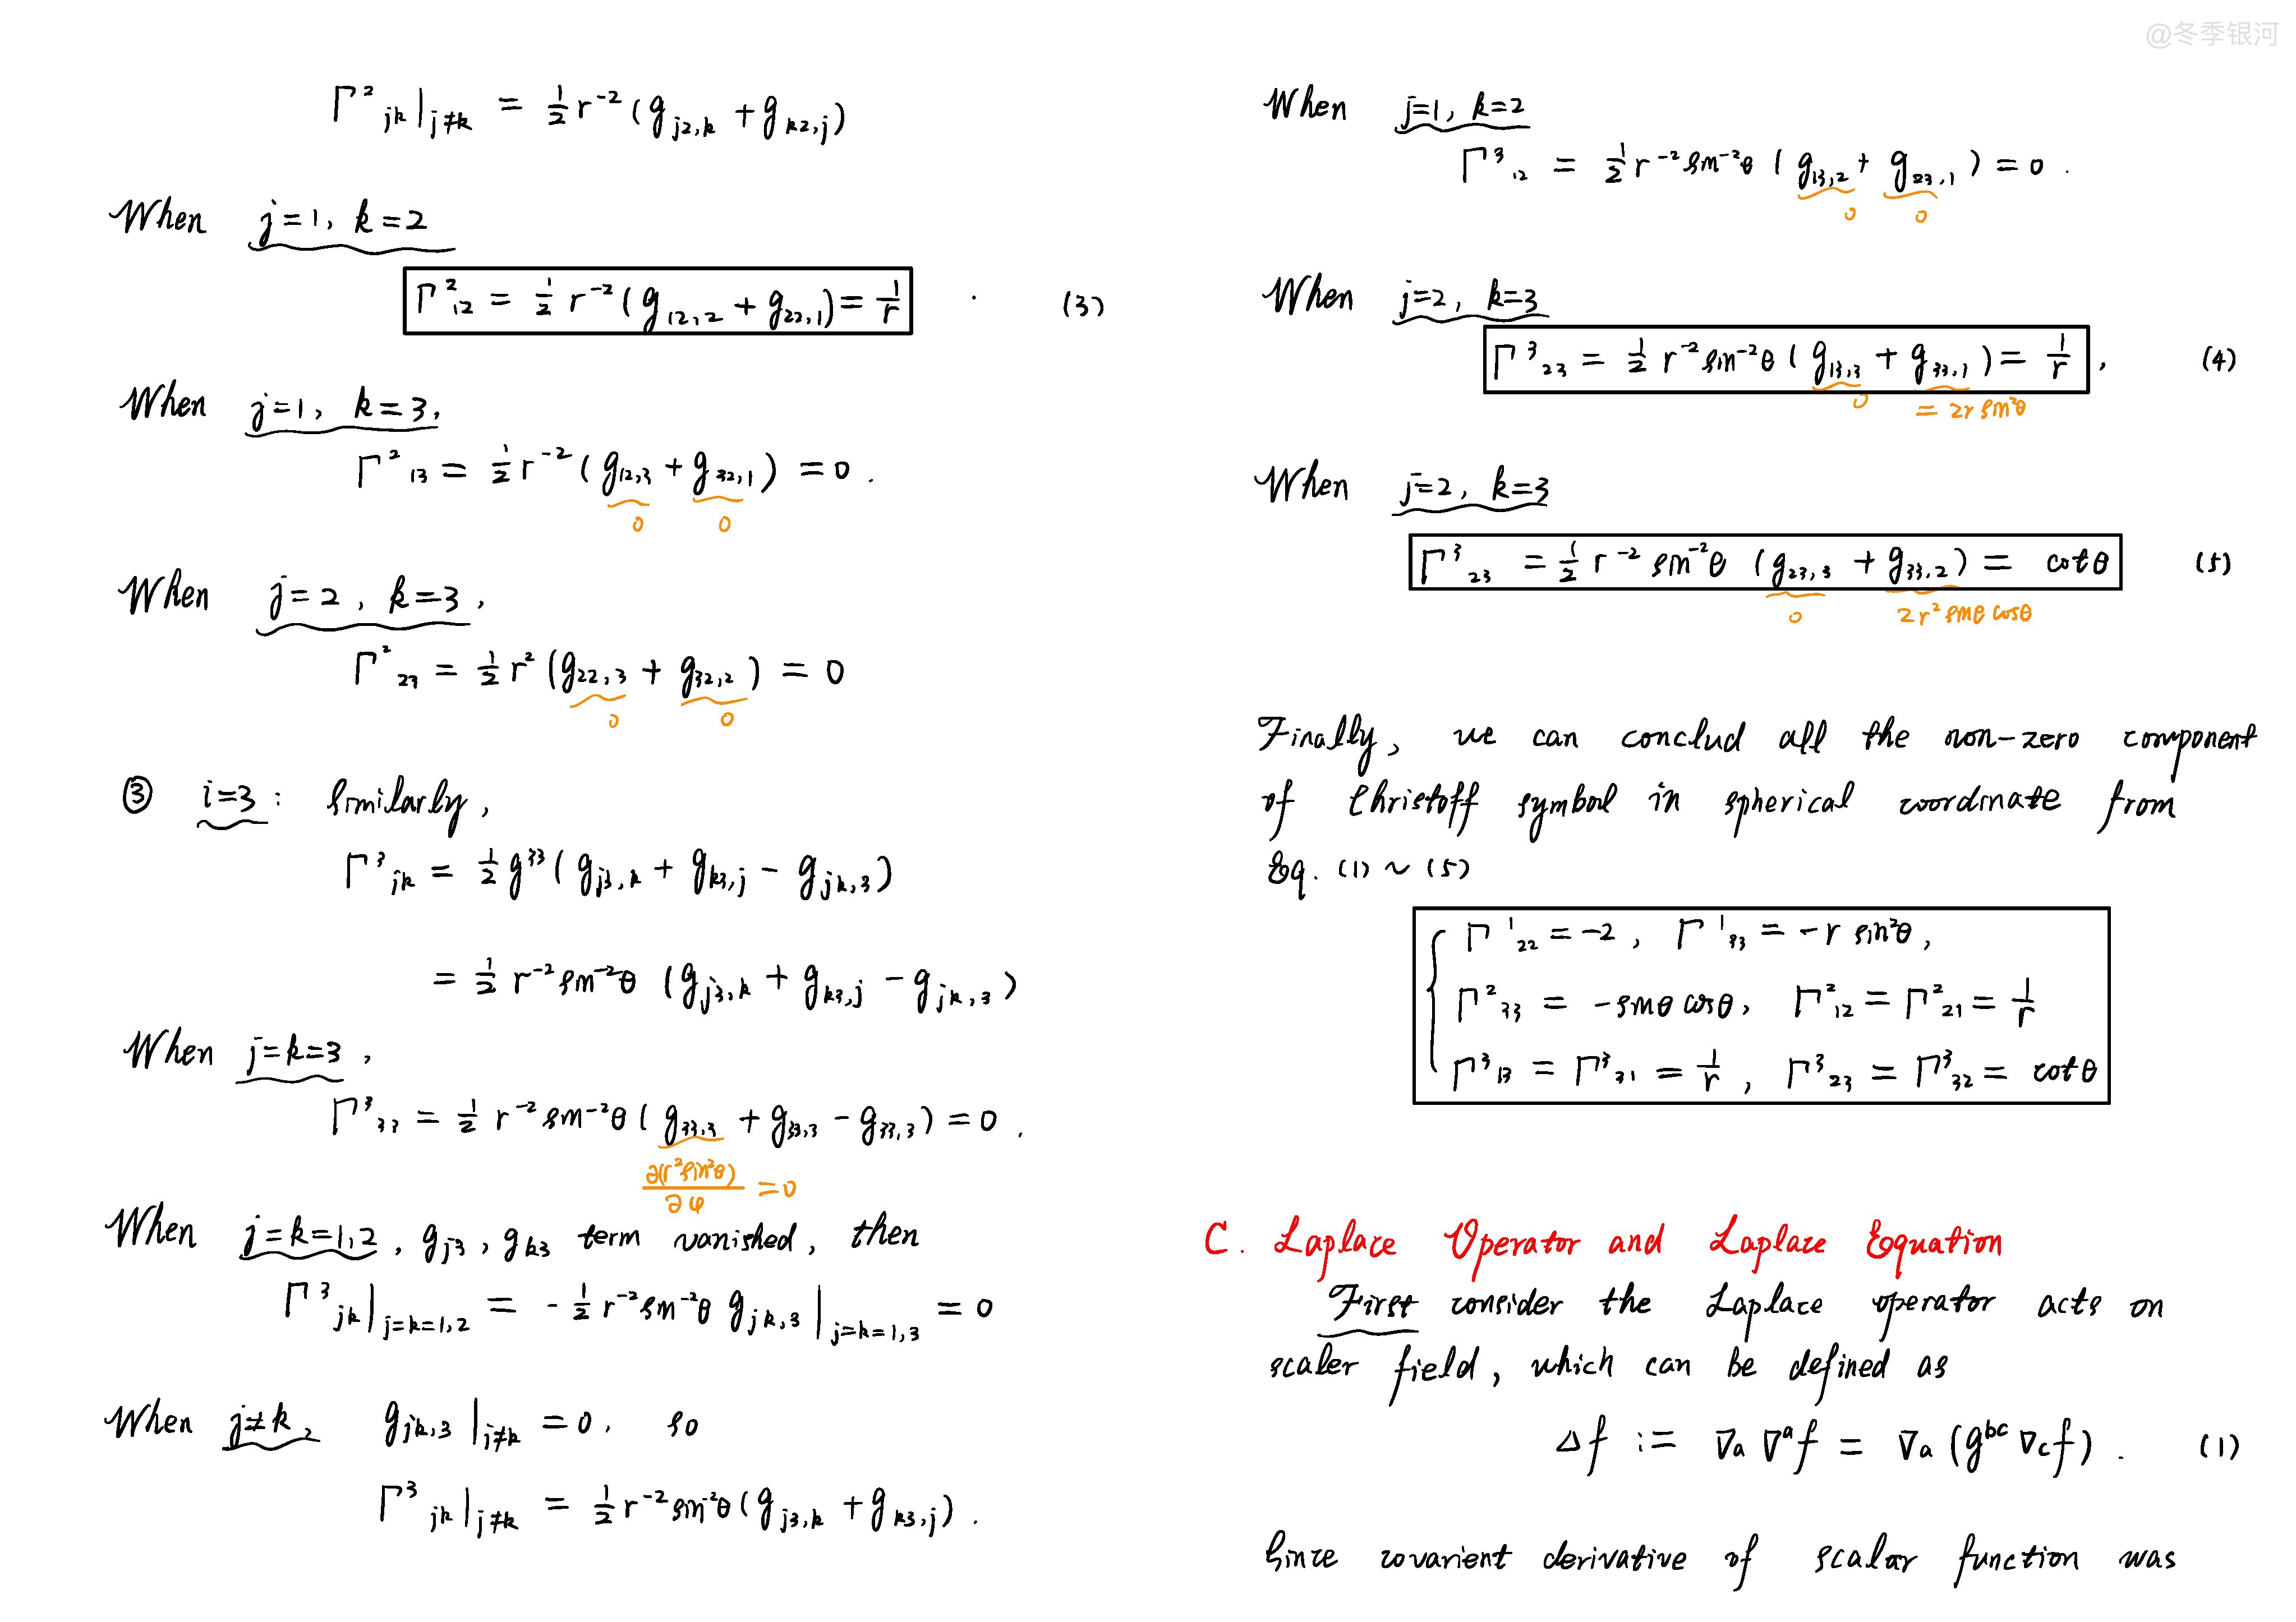 @冬季银河
Γ²_{jk}|_{j≠k} = ½ r⁻² (g_{j2,k} + g_{k2,j})
When j=1, k=2
Γ²₁₂ = ½ r⁻² (g_{12,2} + g_{22,1}) = 1/r . (3)
When j=1, k=3,
Γ²₁₃ = ½ r⁻² (g_{12,3} + g_{32,1}) = 0 .
0 0
When j=2, k=3,
Γ²₂₃ = ½ r² (g_{22,3} + g_{32,2}) = 0
0 0
③ i=3 : Similarly,
Γ³_{jk} = ½ g³³ (g_{j3,k} + g_{k3,j} - g_{jk,3})
= ½ r⁻² sin⁻²θ (g_{j3,k} + g_{k3,j} - g_{jk,3})
When j=k=3 ,
Γ³₃₃ = ½ r⁻² sin⁻²θ (g_{33,3} + g_{33,3} - g_{33,3}) = 0 .
∂(r² sin²θ)/∂φ = 0
When j=k=1,2 , g_{j3} , g_{k3} term vanished, then
Γ³_{jk}|_{j=k=1,2} = - ½ r⁻² sin⁻²θ g_{jk,3}|_{j=k=1,3} = 0
When j≠k, g_{jk,3}|_{j≠k} = 0 . so
Γ³_{jk}|_{j≠k} = ½ r⁻² sin⁻²θ (g_{j3,k} + g_{k3,j}) .
When j=1, k=2
Γ³₁₂ = ½ r⁻² sin⁻²θ (g_{13,2} + g_{23,1}) = 0 .
0 0
When j=2, k=3
Γ³₂₃ = ½ r⁻² sin⁻²θ (g_{13,3} + g_{33,1}) = 1/r , (4)
0 = 2r sin²θ
When j=2, k=3
Γ³₂₃ = ½ r⁻² sin⁻²θ (g_{23,3} + g_{33,2}) = cotθ (5)
0 2r² sinθ cosθ
Finally, we can conclud all the non-zero component
of Christoff symbol in spherical coordinate from
Eq. (1) ~ (5)
Γ¹₂₂ = -2 , Γ¹₃₃ = -r sin²θ ,
Γ²₃₃ = -sinθ cosθ , Γ²₁₂ = Γ²₂₁ = 1/r
Γ³₁₃ = Γ³₃₁ = 1/r , Γ³₂₃ = Γ³₃₂ = cotθ
C. Laplace Operator and Laplace Equation
First consider the Laplace operator acts on
scaler field, which can be defined as
Δf := ∇ₐ ∇ᵃ f = ∇ₐ (g^{bc} ∇_c f) . (1)
Since covarient derivative of scalar function was